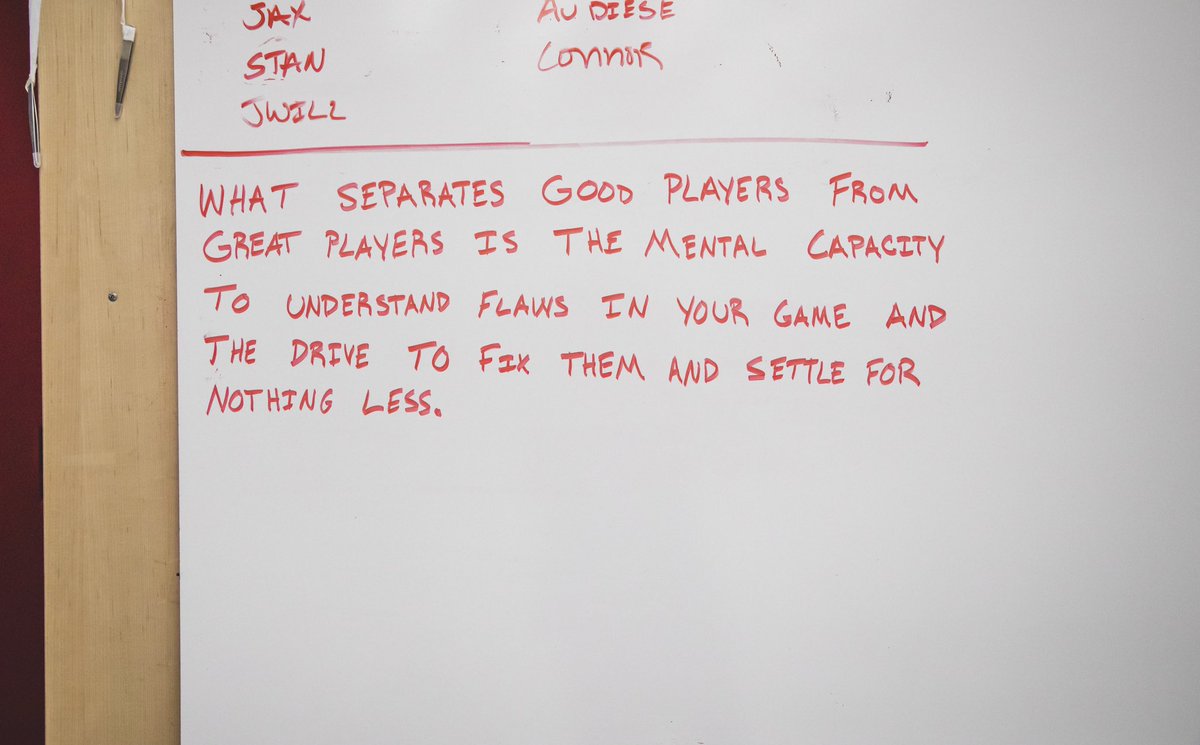 JAX AUDIESE
STAN CONNOR
JWILL
WHAT SEPARATES GOOD PLAYERS FROM
GREAT PLAYERS IS THE MENTAL CAPACITY
TO UNDERSTAND FLAWS IN YOUR GAME AND
THE DRIVE TO FIX THEM AND SETTLE FOR
NOTHING LESS.